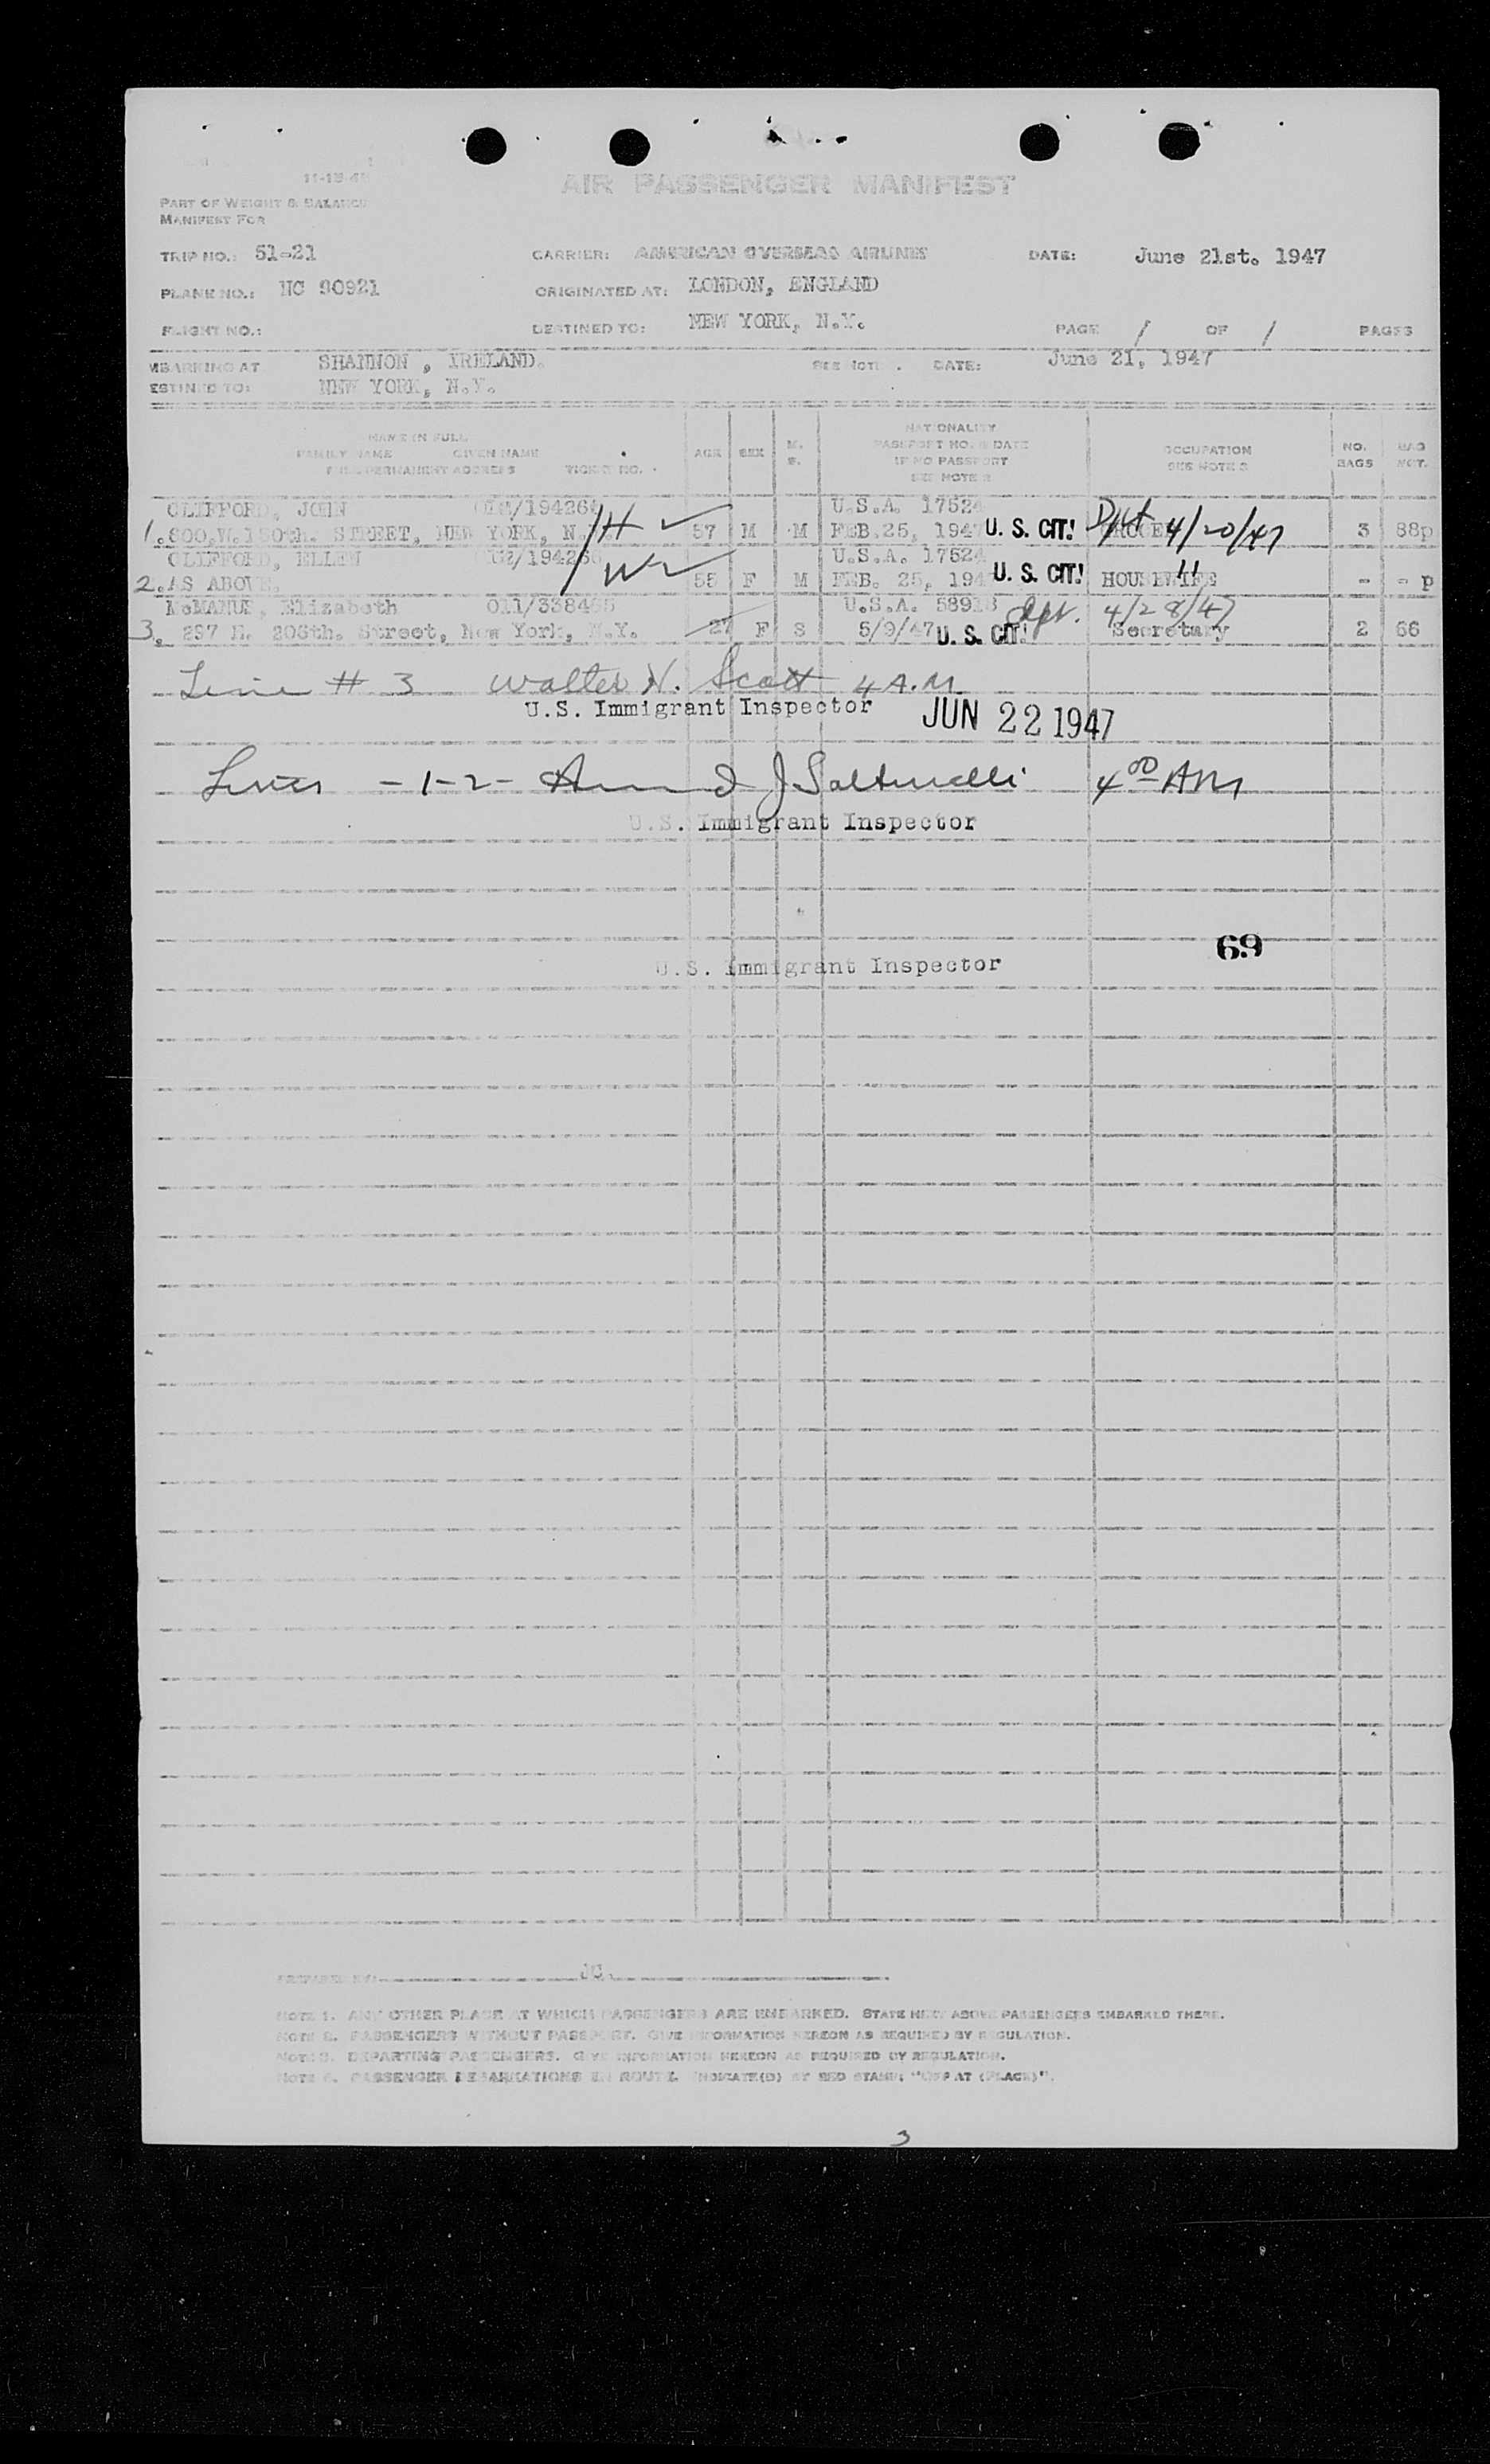 11-15-4
AIR PASSENGER MANIFEST
PART OF WEIGHT & BALANCE
MANIFEST FOR
TRIP NO.: 51-21 CARRIER: AMERICAN OVERSEAS AIRLINES DATE: June 21st. 1947
PLANE NO.: NC 90921 ORIGINATED AT: LONDON, ENGLAND
FLIGHT NO.: DESTINED TO: NEW YORK, N.Y. PAGE 1 OF 1 PAGES
MBARKING AT SHANNON , IRELAND. SEE NOTE . DATE: June 21, 1947
ESTINED TO: NEW YORK, N.Y.
NAME IN FULL
FAMILY NAME GIVEN NAME
FULL PERMANENT ADDRESS TICKET NO.
AGE SEX M. S.
NATIONALITY
PASSPORT NO. & DATE
IF NO PASSPORT
SEE NOTE 2
OCCUPATION
SEE NOTE 3
NO. BAGS
BAG WGT.
CLIFFORD, JOHN /194264 U.S.A. 17524
1. 600.W.150th. STREET, NEW YORK, N. H ✓ 57 M M FEB.25, 1947 U. S. CIT! 4/20/47 3 88p
CLIFFORD, ELLEN /194266 U.S.A. 17524
2. AS ABOVE. W ✓ 55 F M FEB. 25, 194 U. S. CIT! HOUSEWIFE " - - p
McMANUS, Elizabeth 011/338465 U.S.A. 58918 dpt. 4/28/47
3. 297 E. 206th. Street, New York, N.Y. 27 F S 5/9/47 U. S. CIT! Secretary 2 66
Line # 3 Walter N. Scott 4 A.M.
U.S. Immigrant Inspector JUN 22 1947
Lines -1-2- J 4 00 AM
U.S. Immigrant Inspector
69
U.S. Immigrant Inspector
PREPARED BY: JC.
NOTE 1. ANY OTHER PLACE AT WHICH PASSENGERS ARE EMBARKED. STATE NEXT ABOVE PASSENGERS EMBARKED THERE.
NOTE 2. PASSENGERS WITHOUT PASSPORT. GIVE INFORMATION HEREON AS REQUIRED BY REGULATION.
NOTE 3. DEPARTING PASSENGERS. GIVE INFORMATION HEREON AS REQUIRED BY REGULATION.
NOTE 4. PASSENGER DEBARKATIONS EN ROUTE. INDICATE(D) BY RED STAMP: "OFF AT (PLACE)".
3